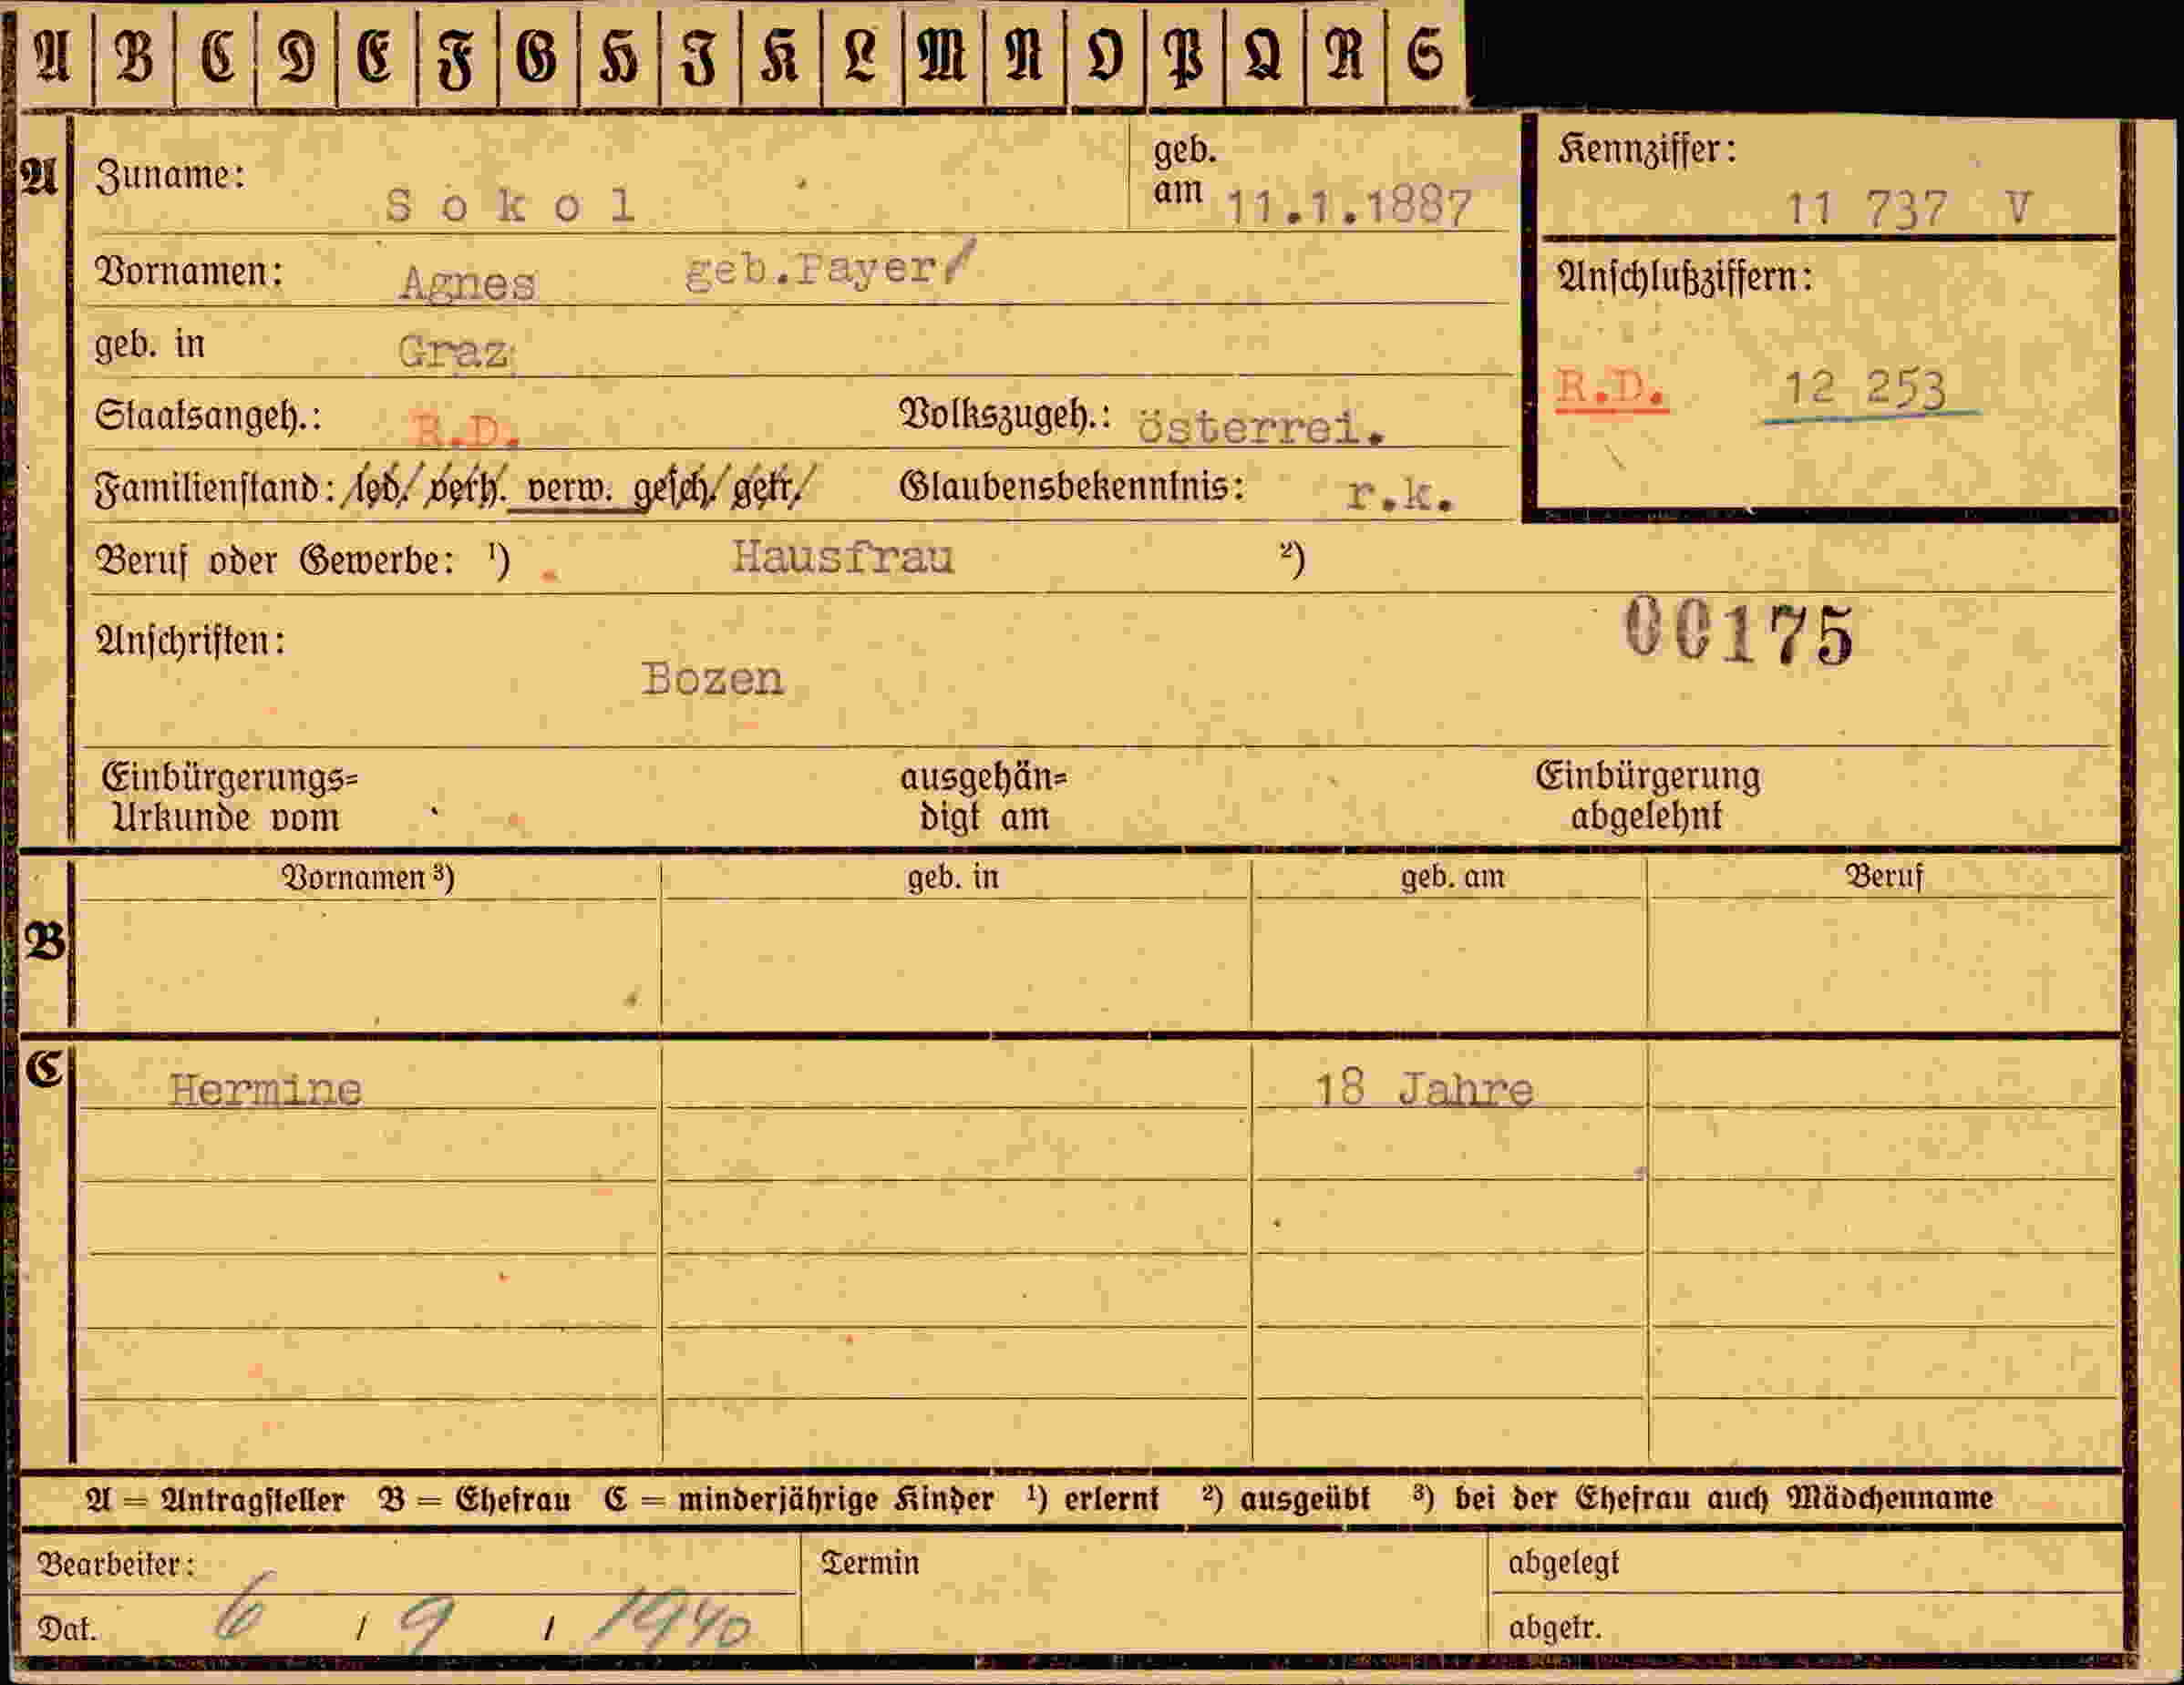 A B C D E F G H I K L M N O P Q R S
A Zuname: Sokol geb. am 11.1.1887
Kennziffer: 11 737 V
Vornamen: Agnes geb.Payer/
Anschlußziffern:
geb. in Graz
R.D. 12 253
Staatsangeh.: R.D. Volkszugeh.: österrei.
Familienstand: led. verh. verw. gesch. getr. Glaubensbekenntnis: r.k.
Beruf oder Gewerbe: ¹) Hausfrau ²)
00175
Anschriften:
Bozen
Einbürgerungs= ausgehän= Einbürgerung
Urkunde vom digt am abgelehnt
Vornamen ³) geb. in geb. am Beruf
B
C Hermine 18 Jahre
A = Antragsteller B = Ehefrau C = minderjährige Kinder ¹) erlernt ²) ausgeübt ³) bei der Ehefrau auch Mädchenname
Bearbeiter: Termin abgelegt
Dat. 6 / 9 / 1940 abgetr.